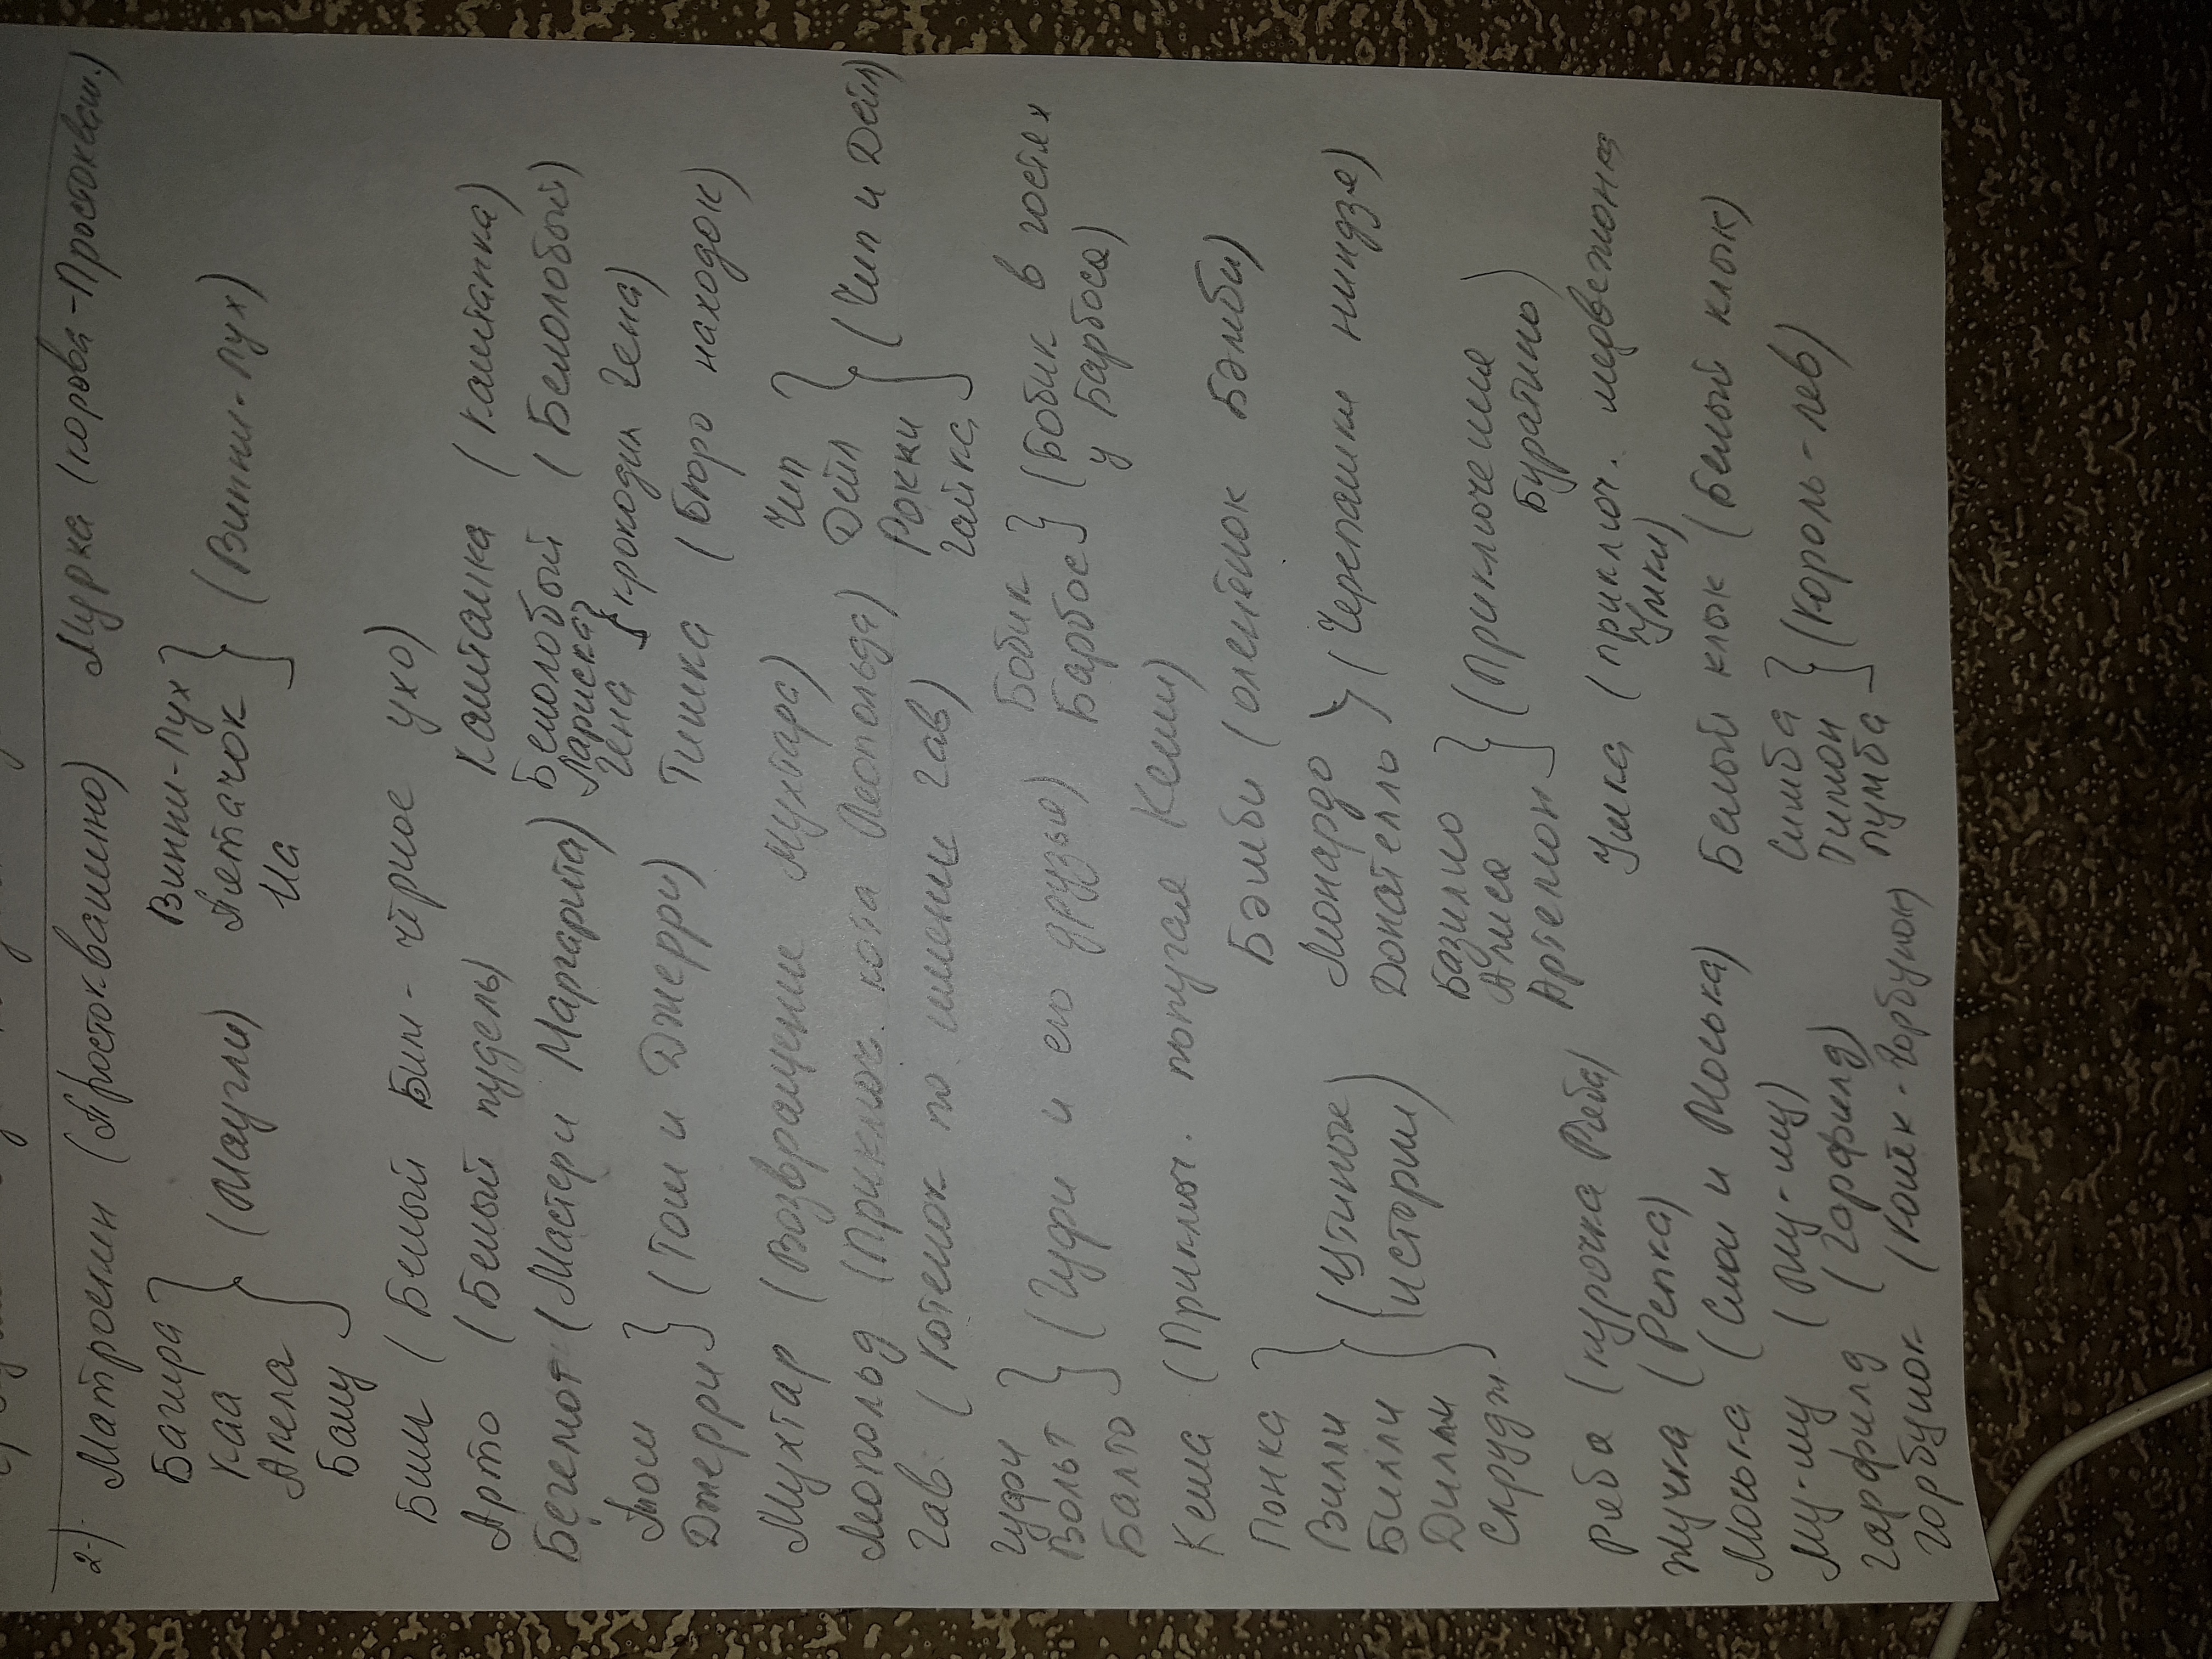 2). Матроскин (Простоквашино) Мурка (корова-Простокваш.)
Багира
Каа
Акела
Балу
(Маугли)
Винни-Пух
Пятачок
Иа
(Винни-Пух)
Бим (Белый Бим - чёрное ухо)
Арто (Белый пудель)
Каштанка (Каштанка)
Бегемот (Мастер и Маргарита)
Белолобый (Белолобый)
Лариска
Гена
крокодил Гена)
Том
Джерри
(Том и Джерри)
Тишка (Бюро находок)
Мухтар (Возвращение Мухтара)
Леопольд (Приключ. кота Леопольда)
Гав. (Котенок по имени Гав)
Чип
Дейл
Рокки
Гайка
(Чип и Дейл)
Гуфи
Вольт
Балто
(Гуфи и его друзья)
Бобик
Барбос
(Бобик в гостях
у Барбоса)
Кеша (Приключ. попугая Кеши)
Бэмби (олешёнок Бэмби)
Понка
Вилли
Билли
Дилли
Скрудж
(Утиные
истории)
Леонардо
Донателло
(Черепашки ниндзя)
Базилио
Алиса
Артемон
(Приключения
Буратино)
Ряба (курочка Ряба)
Жучка (Репка)
Умка (приключ. медвежонка
Умки)
Моська (Слон и Моська)
Белый клык (Белый клык)
Му-му (Му-му)
Гарфилд (Гарфилд)
Горбунок (Конёк-Горбунок)
Симба
Тимон
Пумба
(Король-лев)